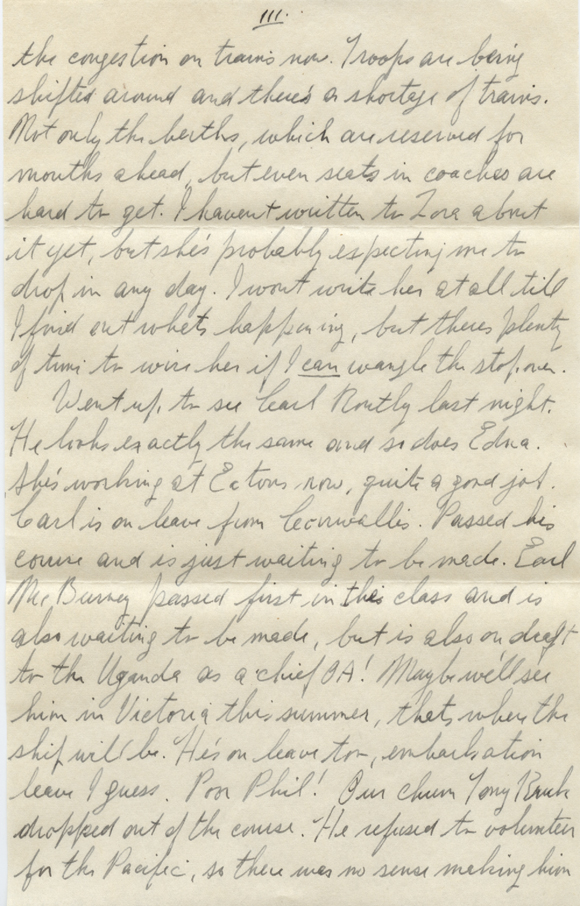 III.
the congestion on trains now. Troops are being
shifted around and there's a shortage of trains.
Not only the berths, which are reserved for
months ahead, but even seats in coaches are
hard to get. I havent written to Zora about
it yet, but she's probably expecting me to
drop in any day. I wont write her at all till
I find out whats happening, but theres plenty
of time to wire her if I can wangle the stop over.
Went up to see Carl Routly last night.
He looks exactly the same and so does Edna.
She's working at Eatons now, quite a good job.
Carl is on leave from Cornwallis. Passed his
course and is just waiting to be made. Earl
McBurney passed first in this class and is
also waiting to be made, but is also on draft
to the Uganda as a chief OA! Maybe we'll see
him in Victoria this summer, thats where the
ship will be. He's on leave too, embarkation
leave I guess. Poor Phil! Our chum Tony
dropped out of the course. He refused to volunteer
for the Pacific, so there was no sense making him